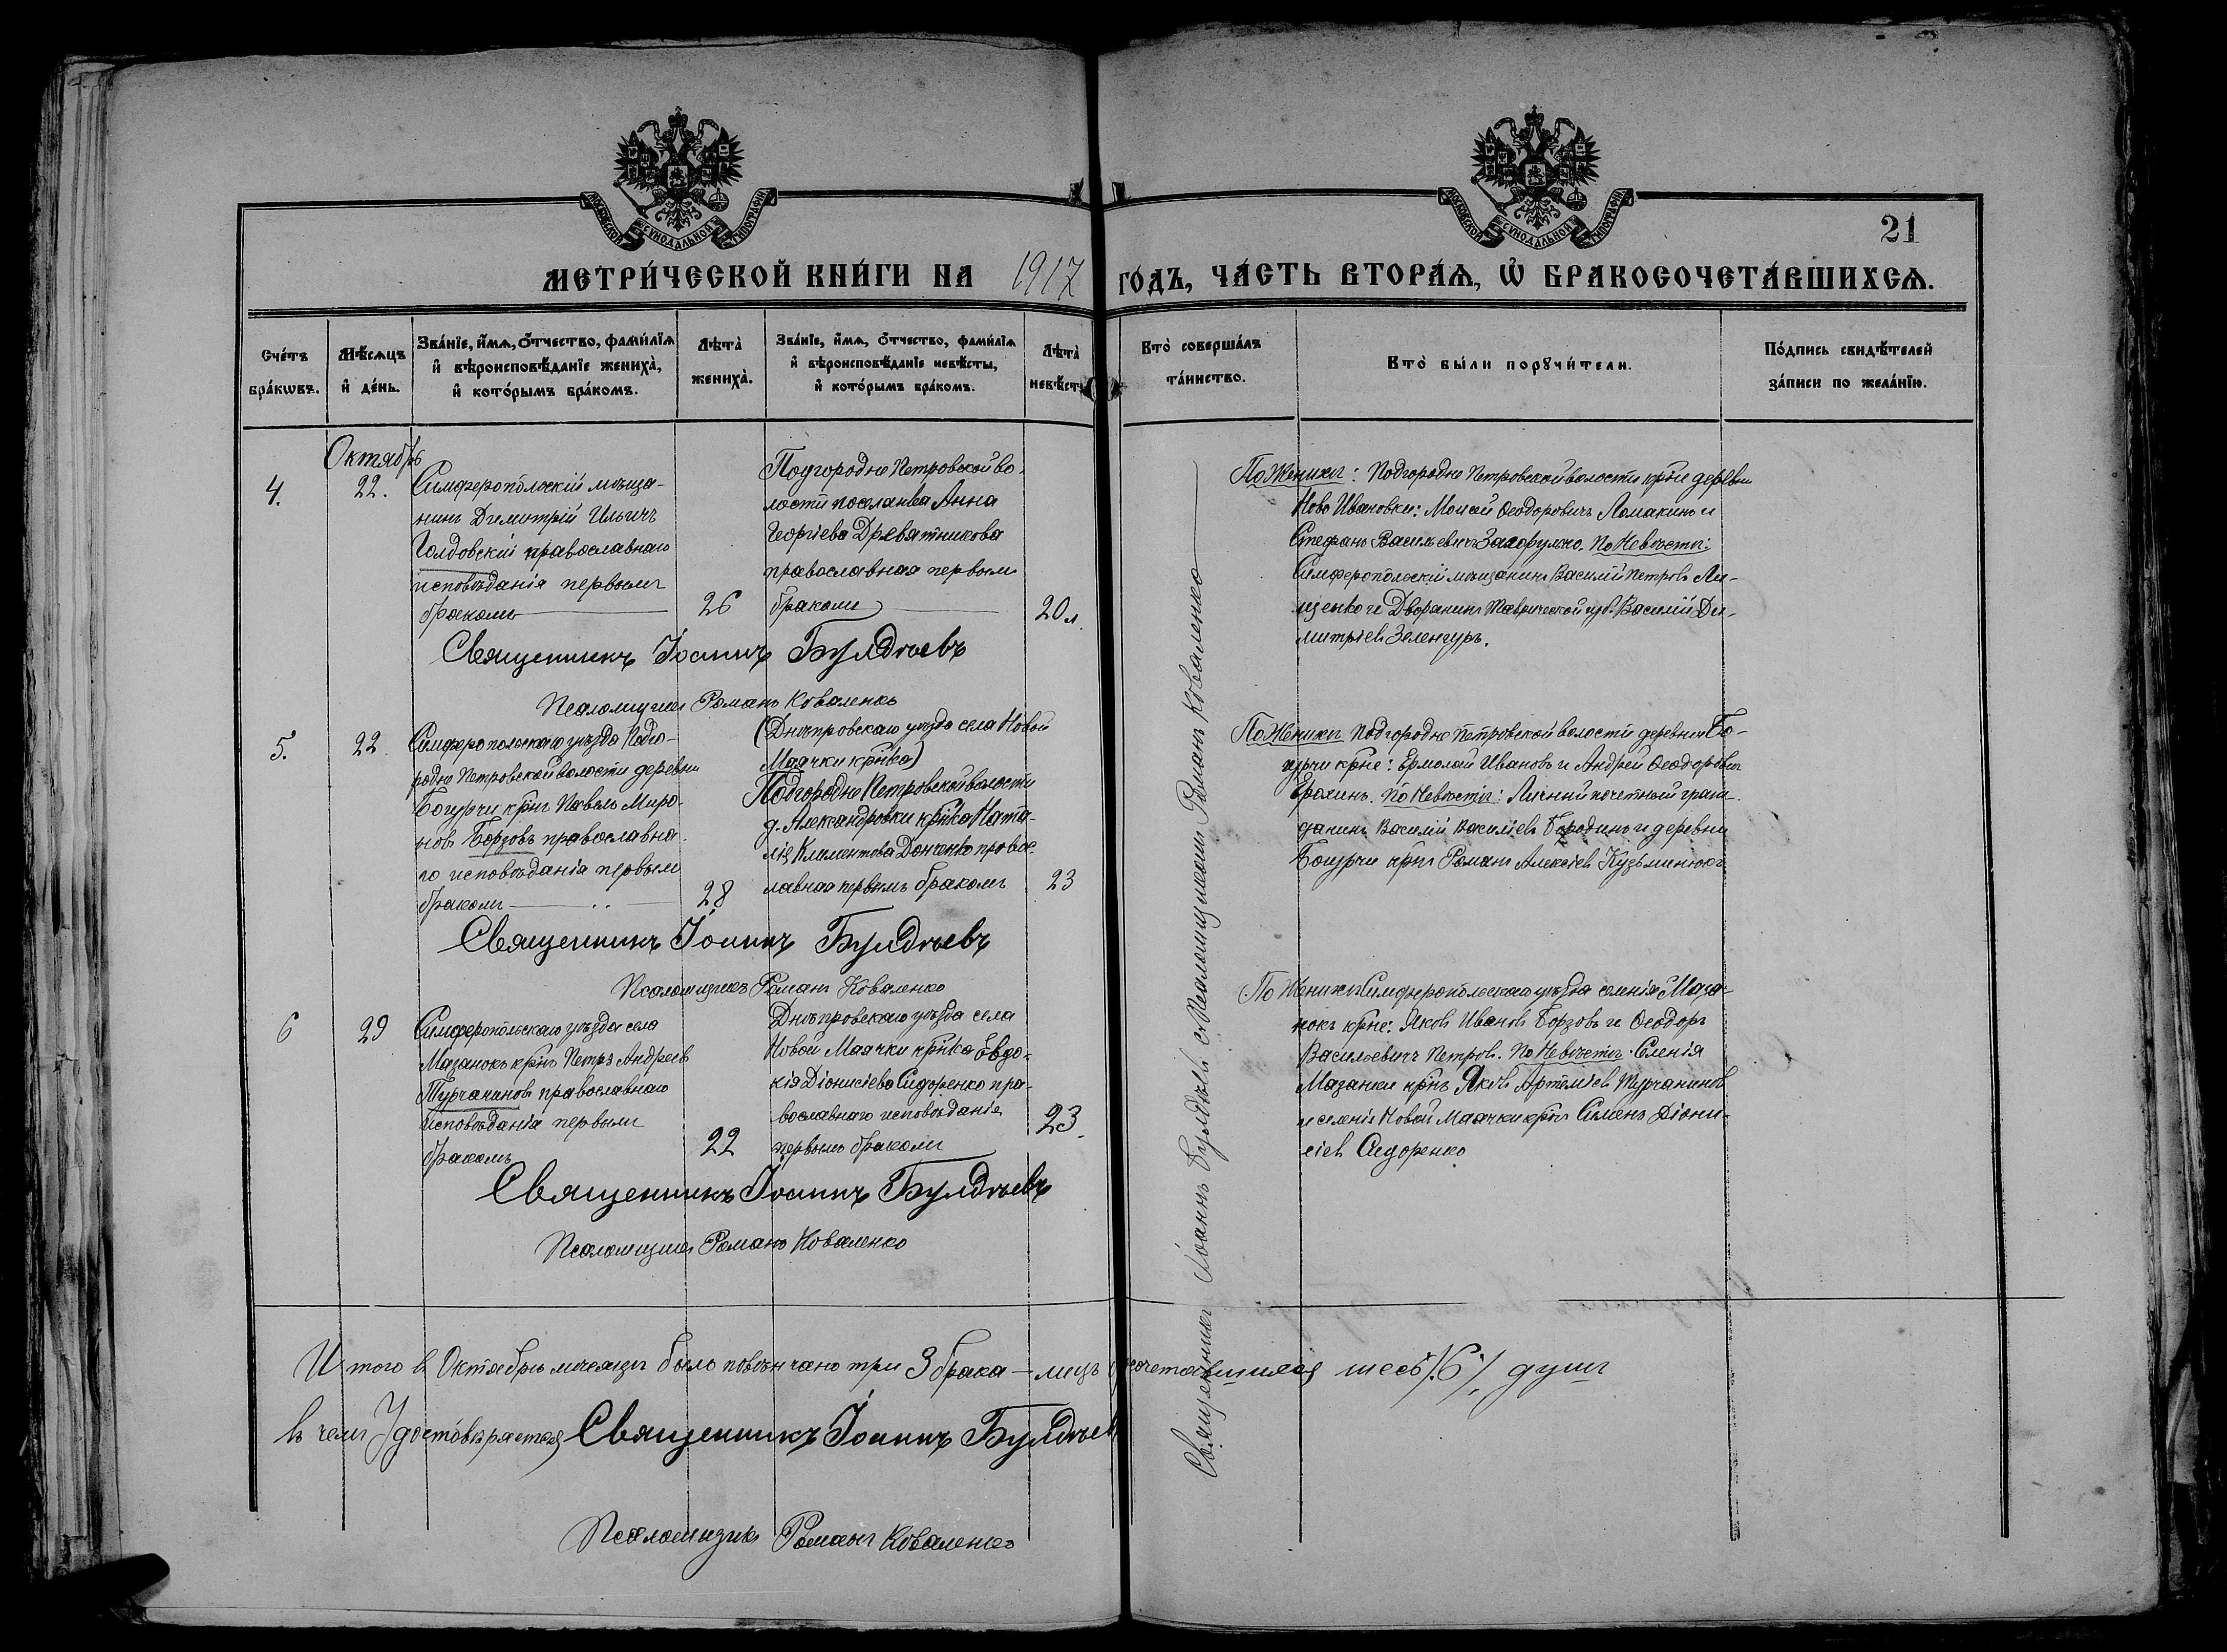 МОСКОВСКОЙ СѴНОДАЛЬНОЙ ТИПОГРАФІИ
МОСКОВСКОЙ СѴНОДАЛЬНОЙ ТИПОГРАФІИ
21
МЕТРИ́ЧЕСКОЙ КНИ́ГИ НА 1917 ГО́ДЪ, ЧА́СТЬ ВТОРА́Ѧ, Ѽ БРАКОСОЧЕТА́ВШИХСѦ.
Сче́тъ бра́кѡвъ.
Мѣ́сѧцъ и҆ де́нь.
Зва́нїе, и҆́мѧ, ѻ҆́тчество, фами́лїѧ и҆ вѣроисповѣ́данїе жениха̀, и҆ кото́рымъ бра́комъ.
Лѣта̀ жениха̀.
Зва́нїе, и҆́мѧ, ѻ҆́тчество, фами́лїѧ и҆ вѣроисповѣ́данїе невѣ́сты, и҆ кото́рымъ бра́комъ.
Лѣта̀ невѣ́сты
Кто̀ соверша́лъ та́инство.
Кто̀ бы́ли порꙋчи́тели.
По́дпись свидѣ́телей за́писи по жела́нїю.
Октябрь
4.
22.
Симферопольскій мѣща-
нинъ Димитрій Ильичъ
Голдовскій православнаго
исповѣданія первымъ
бракомъ
26
Подгородне Петровской во-
лости поселянка Анна
Георгіева Древятникова
православная первымъ
бракомъ
20 л.
По Женихѣ: Подгородне Петровской волости крⷭне деревни
Ново Ивановки: Моисей Ѳеодоровичъ Ломакинъ и
Стефанъ Васильевичъ Загорулько. По Невѣстѣ:
Симферопольскій мѣщанинъ Василій Петровъ Ли-
щенко и Дворянинъ Таврической губ. Василій Ди-
митріевъ Зеленгуръ.
Священникъ Іоаннъ Булдѣевъ
Псаломщикъ Романъ Коваленко
5.
22
Симферопольскаго уѣзда Подго-
родне Петровской волости деревни
Богурчи крнъ Павелъ Миро-
новъ Борзовъ православна-
го исповѣданія первымъ
бракомъ
28
(Днѣпровскаго уѣзда села Новой
Маячки крнка)
Подгородне Петровской волости
д. Александровки крнка Ната-
лія Климентова Донченко правос-
лавная первымъ бракомъ
23
По Женихѣ Подгородне Петровской волости деревни Бо-
гурчи крне: Ермолай Ивановъ и Андрей Ѳеодоровичъ
Ерохинъ. По Невѣстѣ: Личный почетный граж-
данинъ Василій Василіевъ Бородинъ и деревни
Богурчи крнъ Романъ Алексіевъ Кузьминюкъ
Священникъ Іоаннъ Булдѣевъ
Псаломщикъ Романъ Коваленко
6
29
Симферопольскаго уѣзда села
Мазанокъ крнъ Петръ Андреев
Турчаниновъ православнаго
исповѣданія первымъ
бракомъ
22
Днѣпровскаго уѣзда села
Новой Маячки крнка Евдо-
кія Діонисіева Сидоренко пра-
вославнаго исповѣданія
первымъ бракомъ
23.
По Женихѣ Симферопольскаго уѣзда селенія Маза-
нокъ крне: Яковъ Ивановъ Борзовъ и Ѳеодоръ
Васильевичъ Петровъ. По Невѣстѣ: Селенія
Мазанки крнъ Яковъ Артеміевъ Турчаниновъ
и селенія Новой Маячки крнъ Симонъ Діони-
сіевъ Сидоренко
Священникъ Іоаннъ Булдѣевъ
Псаломщикъ Романъ Коваленко
Священникъ Іоаннъ Булдѣевъ съ Псаломщикомъ Романъ Коваленко
Итого в Октябрѣ мѣсяцѣ было повѣнчано три 3 брака — лицъ сочетавшихся шесть /6/ душъ
въ чемъ Удостовѣряется Священникъ Іоаннъ Булдѣевъ
Псаломщикъ Романъ Коваленко